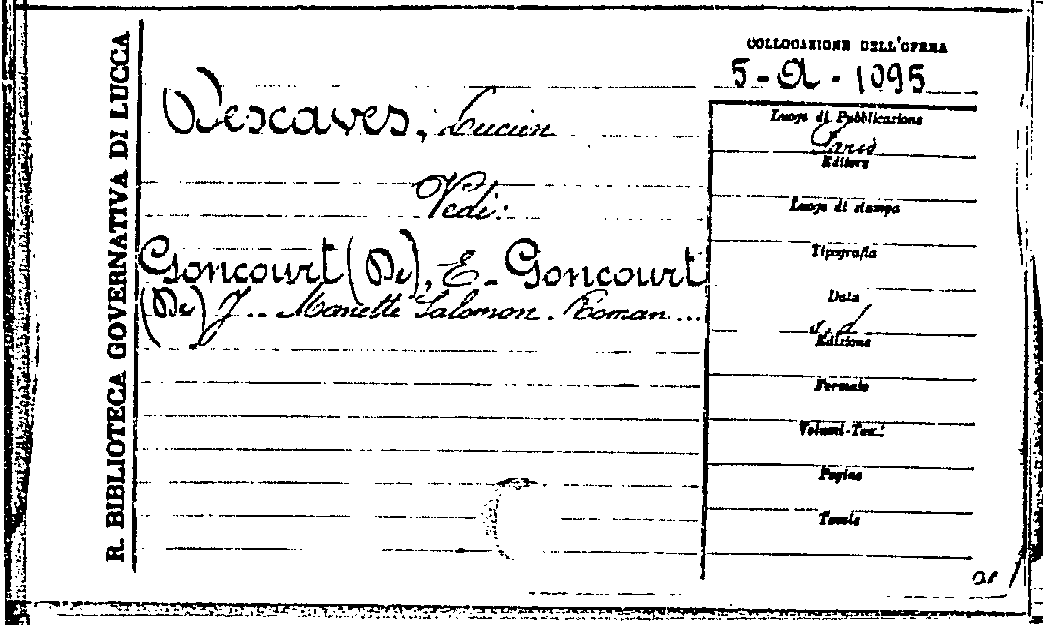 R. BIBLIOTECA GOVERNATIVA DI LUCCA
COLLOCAZIONE DELL'OPERA
5-A-1095
Descaves, Lucien
Vedi:
Goncourt (De), E. - Goncourt
(De) J. - Manette Salomon. Roman ...
Luogo di Pubblicazione
Paris
Editore
Luogo di stampa
Tipografia
Data
s. d.
Edizione
Formato
Volumi-Tom.:
Pagine
Tavole